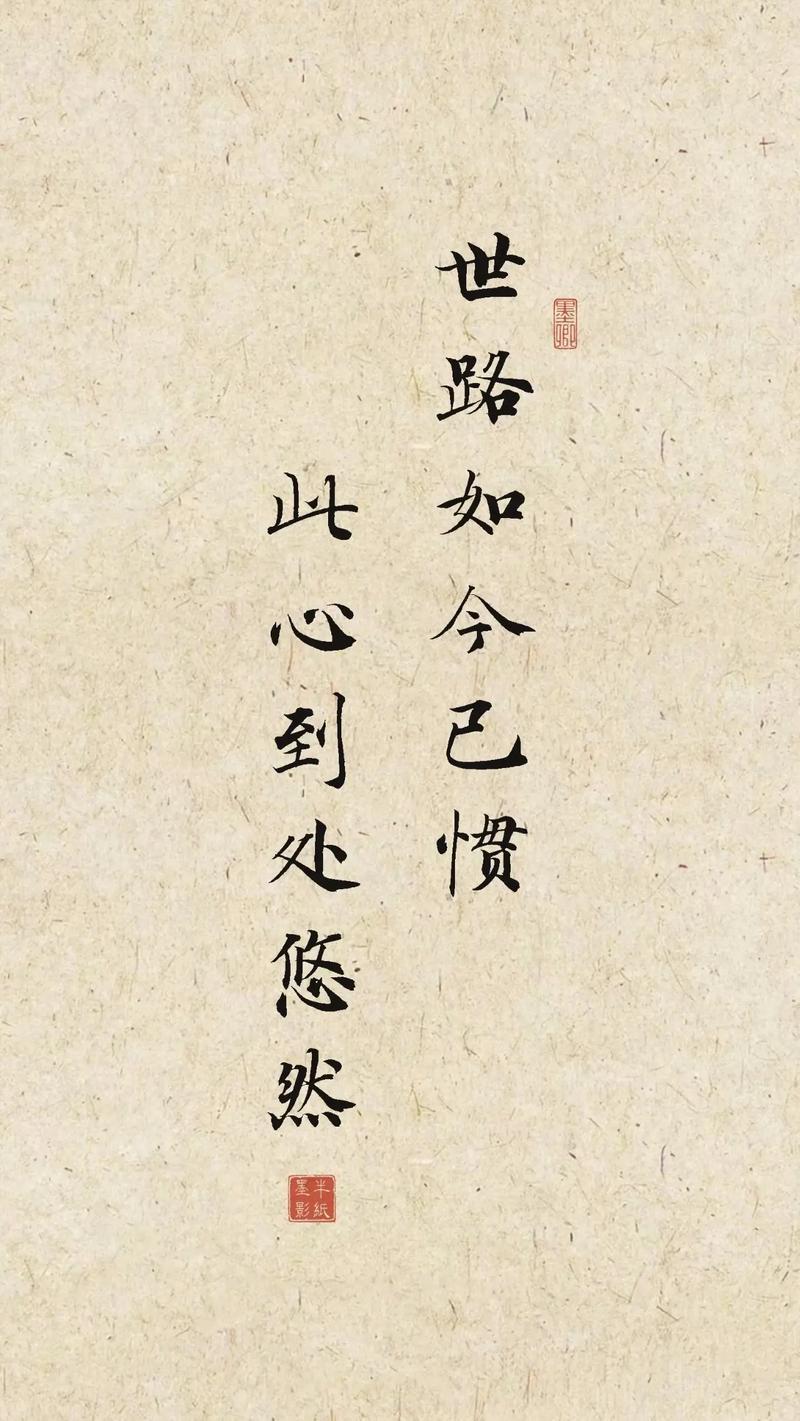 世路如今已惯
此心到处悠然
墨卿
半纸
墨影